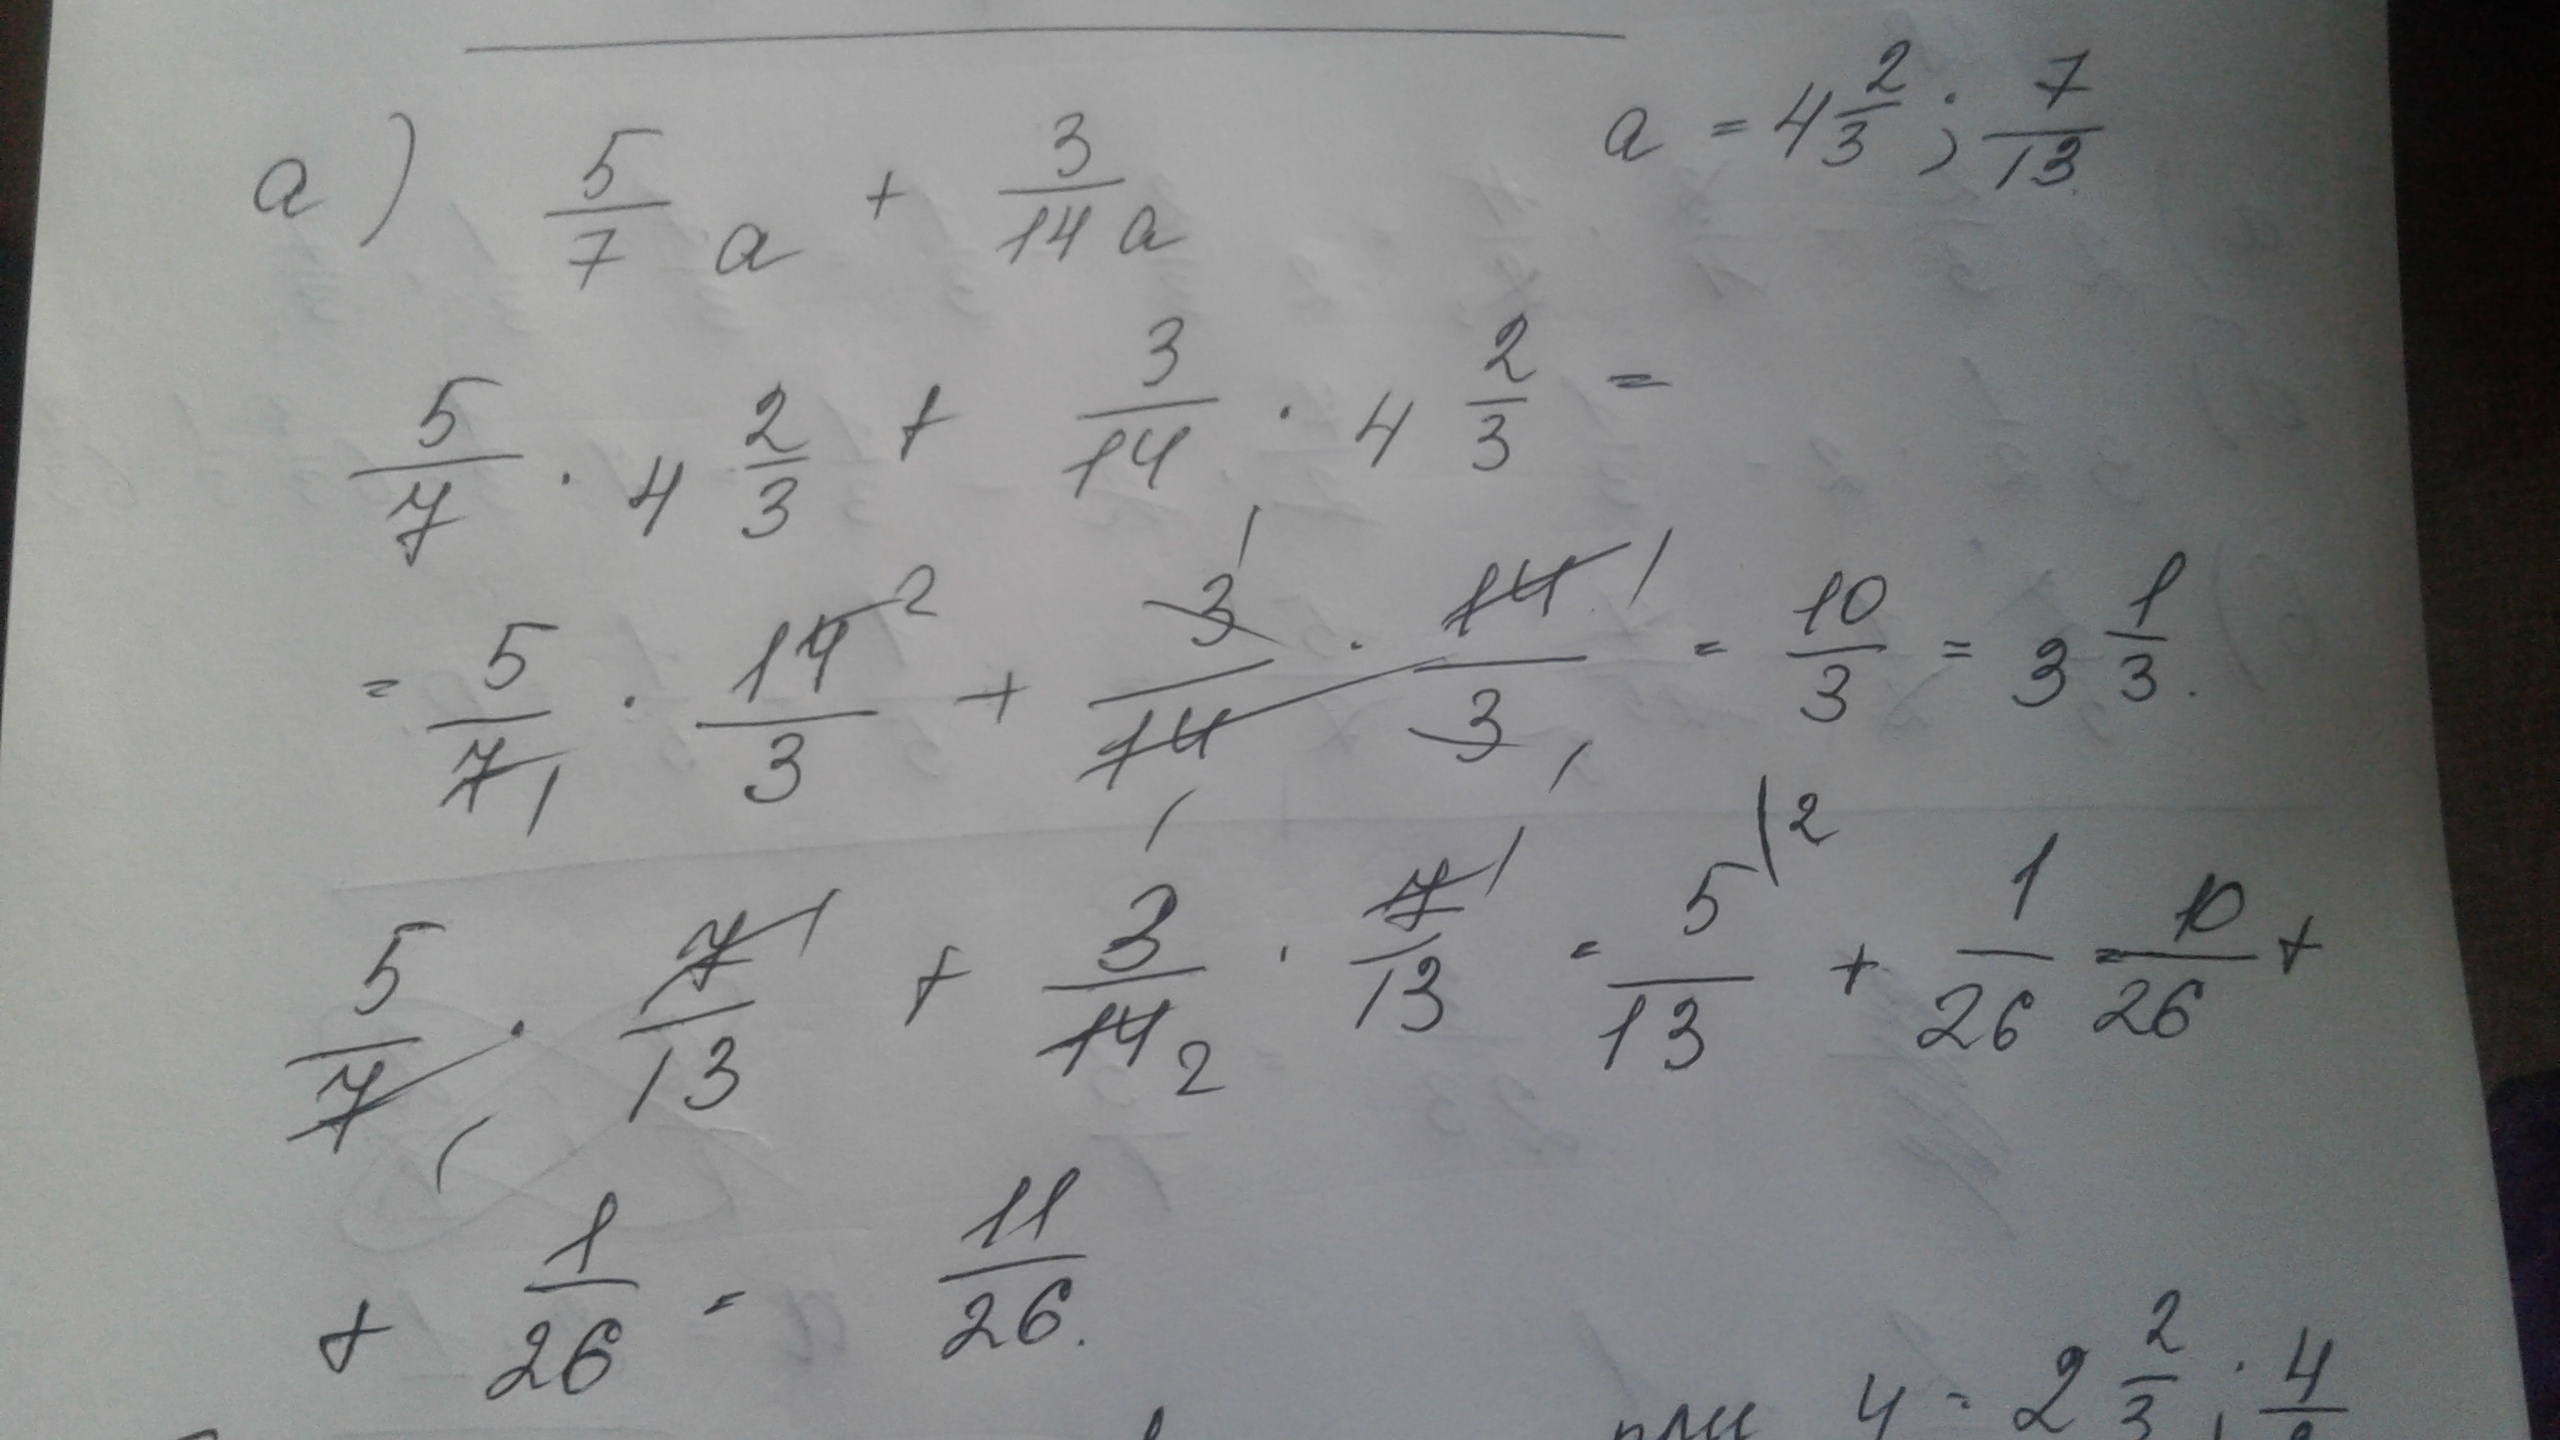 a) 5/7 a + 3/14 a     a = 4 2/3 ; 7/13
5/7 · 4 2/3 + 3/14 · 4 2/3 =
= 5/7 1 · 14 2/3 + 3 1/14 1 · 14 1/3 1 = 10/3 = 3 1/3.
5/7 1 · 7 1/13 + 3/14 2 · 7 1/13 = 5 |2/13 + 1/26 = 10/26 +
+ 1/26 = 11/26.
при y = 2 2/3 ; 4/